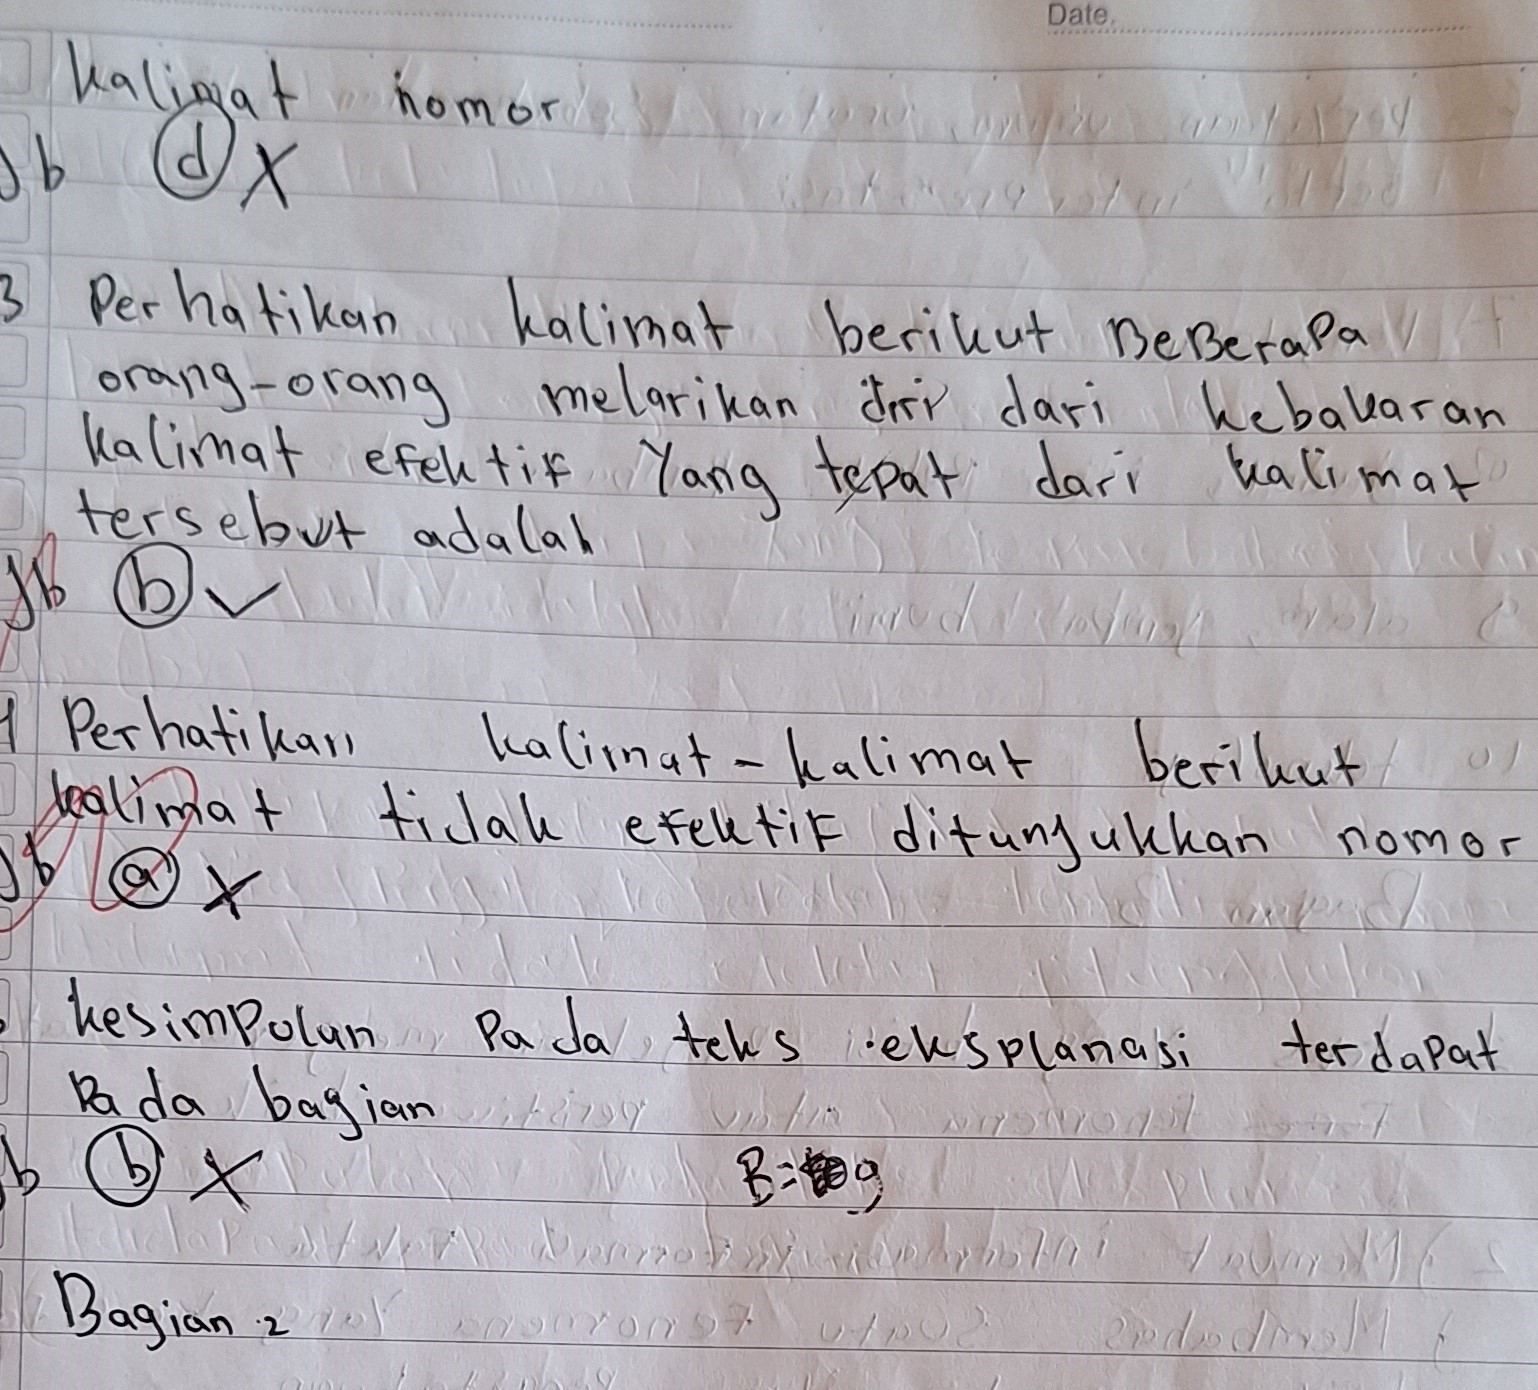 Date.
kalimat nomor
Jb d X
3 Perhatikan kalimat berikut BeBeraPa
orang-orang melarikan diri dari kebakaran
kalimat efektif Yang tepat dari kalimat
tersebut adalah
Jb b ✓
Perhatikan kalimat-kalimat berikut
kalimat tidak efektif ditunjukkan nomor
Jb a X
kesimPolan Pada teks eksplanasi terdaPat
Pada bagian
b b X
B= 9
Bagian 2